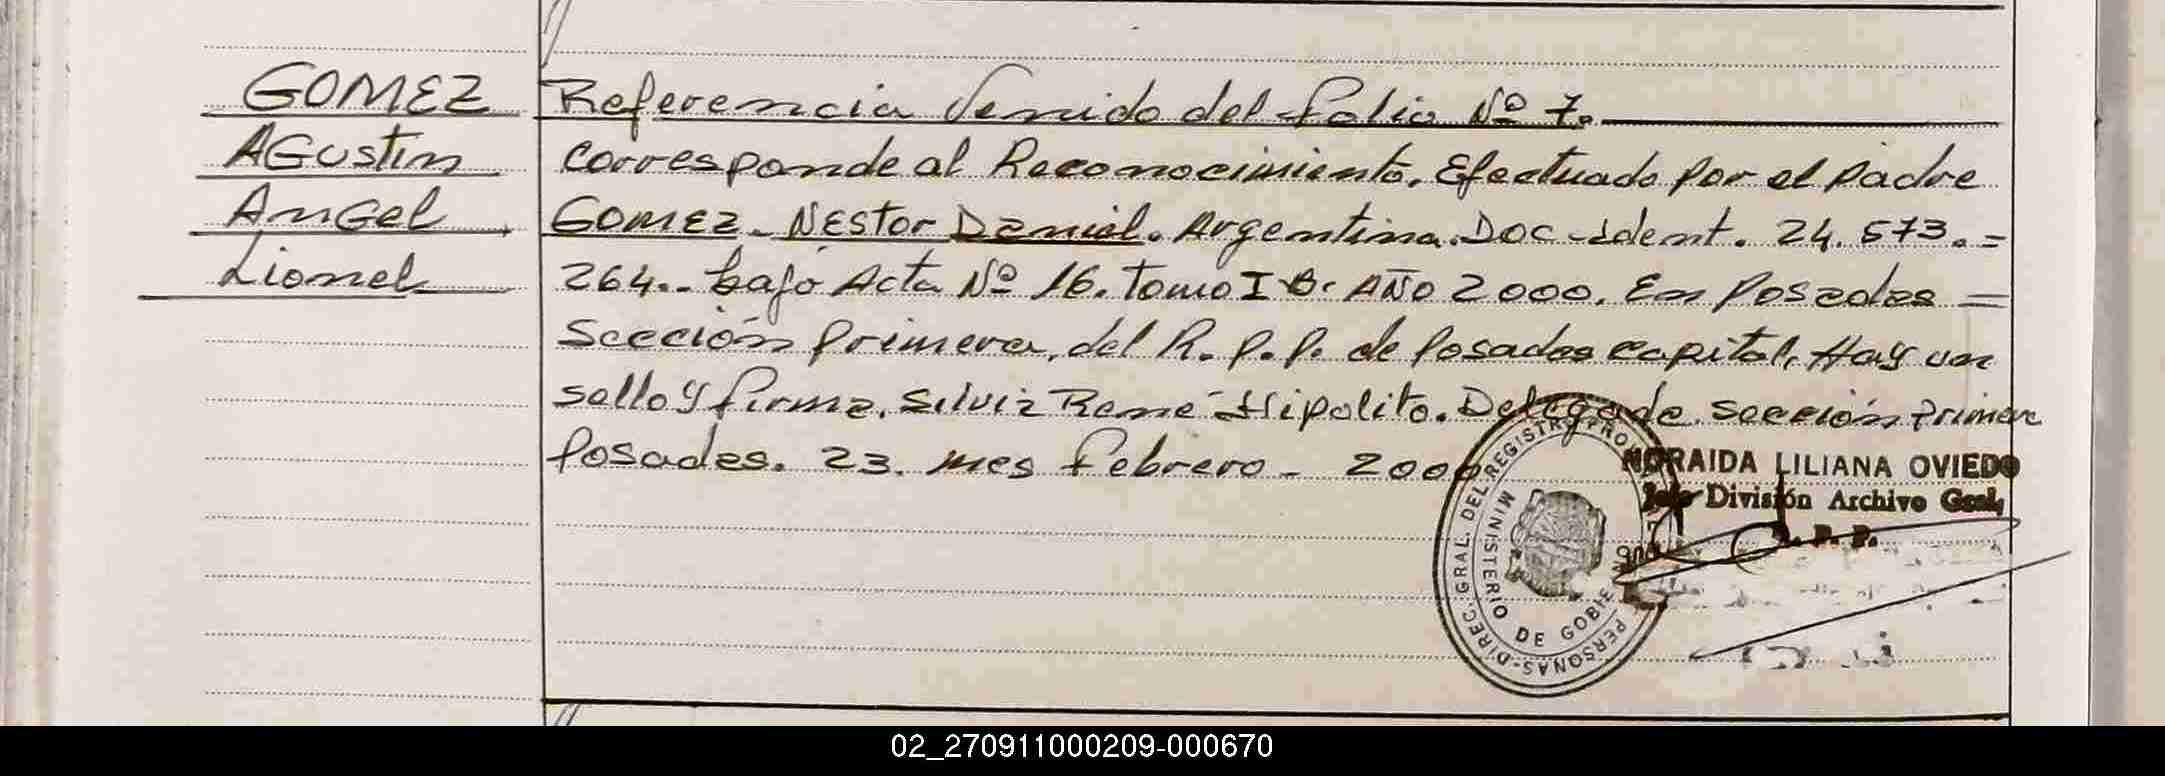 GOMEZ
AGustin
AnGel
Lionel
Referencia Venido del folio Nº 7.
Corresponde al Reconocimiento. Efectuado por el padre
GOMEZ - NEStor Daniel. Argentina. Doc - Ident. 24. 573. =
264.. bajo Acta Nº 16. Tomo I B. AÑO 2000. En Posadas =
Sección primera, del R. p. p. de Posadas capital, Hay un
sello y firma. Silvia René Hipolito. Delegada Sección Primera
Posadas. 23. mes febrero - 2000
NORAIDA LILIANA OVIEDO
Jefe División Archivo Gral.
R. P. P.
DIREC. GRAL. DEL REGISTRO PROV
PERSONAS
MINISTERIO DE GOBIE
02_270911000209-000670